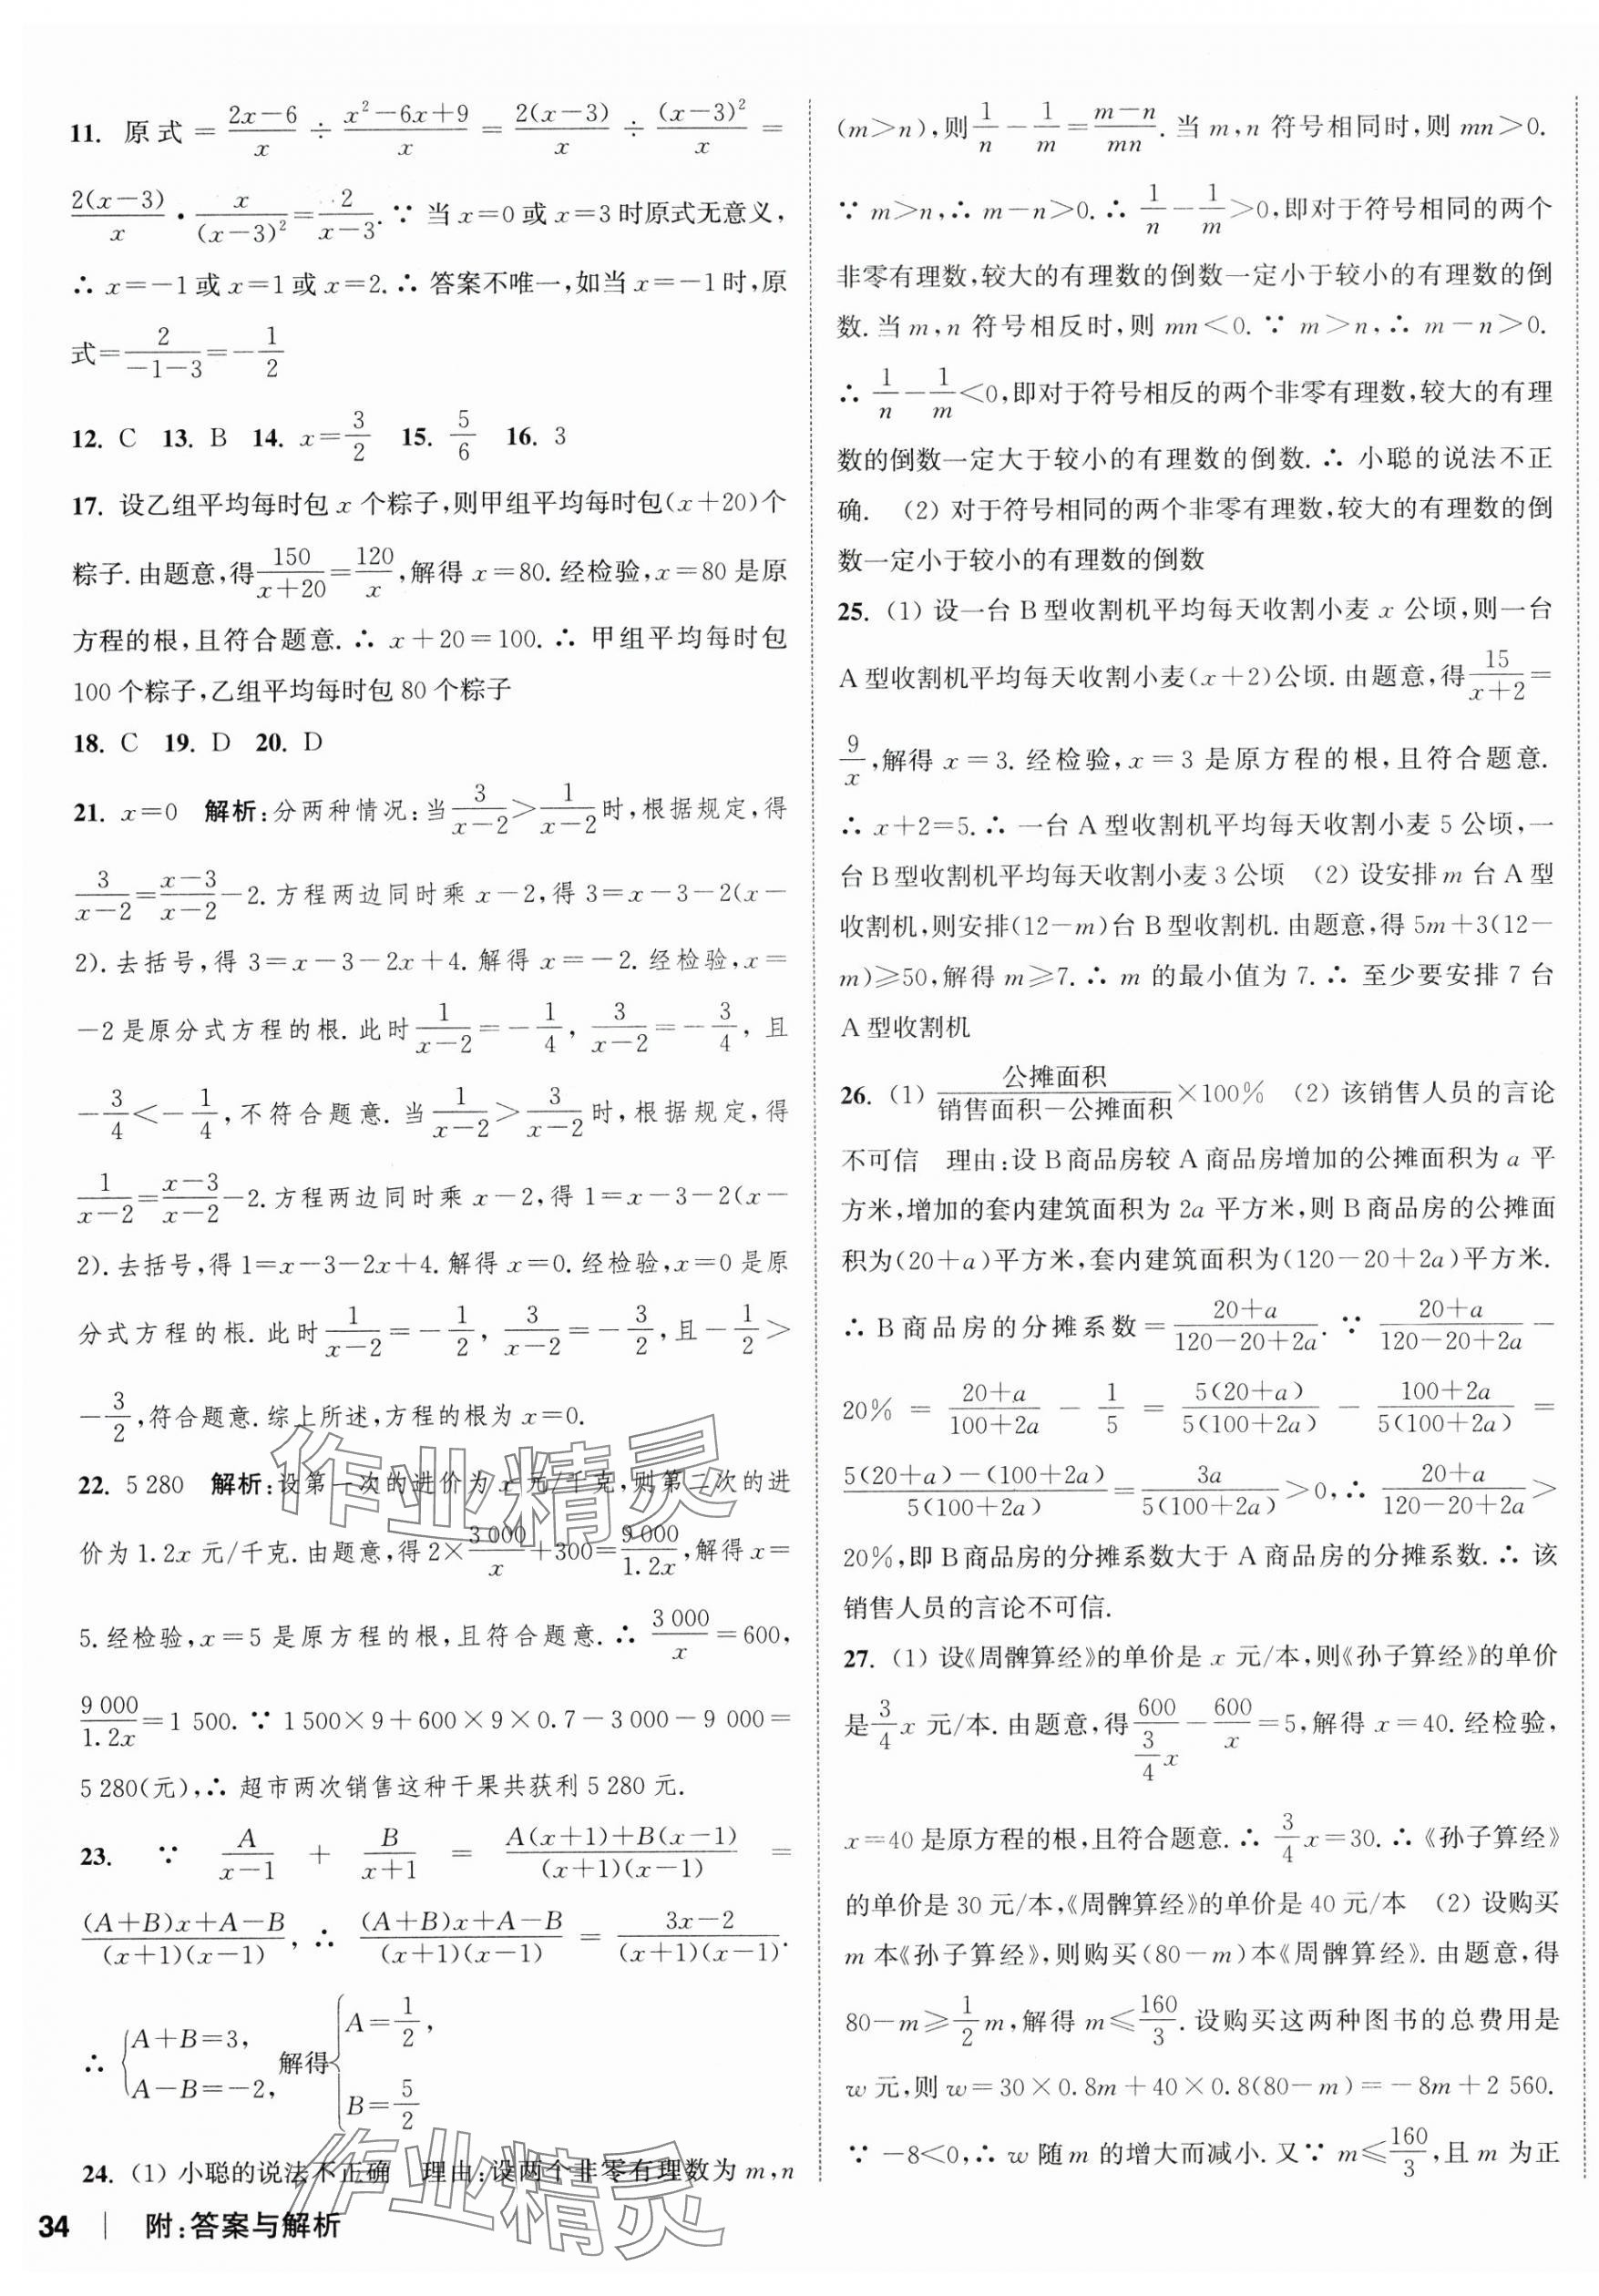 11. 原式=\frac{2x-6}{x}÷\frac{x²-6x+9}{x}=\frac{2(x-3)}{x}÷\frac{(x-3)²}{x}=
\frac{2(x-3)}{x}·\frac{x}{(x-3)²}=\frac{2}{x-3}.∵ 当x=0或x=3时原式无意义,
∴ x=-1或x=1或x=2.∴ 答案不唯一,如当x=-1时,原
式=\frac{2}{-1-3}=-\frac{1}{2}
12. C 13. B 14. x=\frac{3}{2} 15. \frac{5}{6} 16. 3
17. 设乙组平均每时包x个粽子,则甲组平均每时包(x+20)个
粽子.由题意,得\frac{150}{x+20}=\frac{120}{x},解得x=80.经检验,x=80是原
方程的根,且符合题意.∴ x+20=100.∴ 甲组平均每时包
100个粽子,乙组平均每时包80个粽子
18. C 19. D 20. D
21. x=0 解析:分两种情况:当\frac{3}{x-2}>\frac{1}{x-2}时,根据规定,得
\frac{3}{x-2}=\frac{x-3}{x-2}-2.方程两边同时乘x-2,得3=x-3-2(x-
2).去括号,得3=x-3-2x+4.解得x=-2.经检验,x=
-2是原分式方程的根.此时\frac{1}{x-2}=-\frac{1}{4},\frac{3}{x-2}=-\frac{3}{4},且
-\frac{3}{4}<-\frac{1}{4},不符合题意.当\frac{1}{x-2}>\frac{3}{x-2}时,根据规定,得
\frac{1}{x-2}=\frac{x-3}{x-2}-2.方程两边同时乘x-2,得1=x-3-2(x-
2).去括号,得1=x-3-2x+4.解得x=0.经检验,x=0是原
分式方程的根.此时\frac{1}{x-2}=-\frac{1}{2},\frac{3}{x-2}=-\frac{3}{2},且-\frac{1}{2}>
-\frac{3}{2},符合题意.综上所述,方程的根为x=0.
22. 5 280 解析:设第一次的进价为x元/千克,则第二次的进
价为1.2x元/千克.由题意,得2×\frac{3 000}{x}+300=\frac{9 000}{1.2x},解得x=
5.经检验,x=5是原方程的根,且符合题意.∴ \frac{3 000}{x}=600,
\frac{9 000}{1.2x}=1 500.∵ 1 500×9+600×9×0.7-3 000-9 000=
5 280(元),∴ 超市两次销售这种干果共获利5 280元.
23. ∵ \frac{A}{x-1}+\frac{B}{x+1}=\frac{A(x+1)+B(x-1)}{(x+1)(x-1)}=
\frac{(A+B)x+A-B}{(x+1)(x-1)},∴ \frac{(A+B)x+A-B}{(x+1)(x-1)}=\frac{3x-2}{(x+1)(x-1)}.
∴ {A+B=3, A-B=-2, 解得{A=\frac{1}{2}, B=\frac{5}{2}
24. (1) 小聪的说法不正确 理由:设两个非零有理数为m,n
34 | 附:答案与解析
(m>n),则\frac{1}{n}-\frac{1}{m}=\frac{m-n}{mn}.当m,n符号相同时,则mn>0.
∵ m>n,∴ m-n>0.∴ \frac{1}{n}-\frac{1}{m}>0,即对于符号相同的两个
非零有理数,较大的有理数的倒数一定小于较小的有理数的倒
数.当m,n符号相反时,则mn<0.∵ m>n,∴ m-n>0.
∴ \frac{1}{n}-\frac{1}{m}<0,即对于符号相反的两个非零有理数,较大的有理
数的倒数一定大于较小的有理数的倒数.∴ 小聪的说法不正
确. (2) 对于符号相同的两个非零有理数,较大的有理数的倒
数一定小于较小的有理数的倒数
25. (1) 设一台B型收割机平均每天收割小麦x公顷,则一台
A型收割机平均每天收割小麦(x+2)公顷.由题意,得\frac{15}{x+2}=
\frac{9}{x},解得x=3.经检验,x=3是原方程的根,且符合题意.
∴ x+2=5.∴ 一台A型收割机平均每天收割小麦5公顷,一
台B型收割机平均每天收割小麦3公顷 (2) 设安排m台A型
收割机,则安排(12-m)台B型收割机.由题意,得5m+3(12-
m)≥50,解得m≥7.∴ m的最小值为7.∴ 至少要安排7台
A型收割机
26. (1) \frac{公摊面积}{销售面积-公摊面积}×100% (2) 该销售人员的言论
不可信 理由:设B商品房较A商品房增加的公摊面积为a平
方米,增加的套内建筑面积为2a平方米,则B商品房的公摊面
积为(20+a)平方米,套内建筑面积为(120-20+2a)平方米.
∴ B商品房的分摊系数=\frac{20+a}{120-20+2a}.∵ \frac{20+a}{120-20+2a}-
20%=\frac{20+a}{100+2a}-\frac{1}{5}=\frac{5(20+a)}{5(100+2a)}-\frac{100+2a}{5(100+2a)}=
\frac{5(20+a)-(100+2a)}{5(100+2a)}=\frac{3a}{5(100+2a)}>0,∴ \frac{20+a}{120-20+2a}>
20%,即B商品房的分摊系数大于A商品房的分摊系数.∴ 该
销售人员的言论不可信.
27. (1) 设《周髀算经》的单价是x元/本,则《孙子算经》的单价
是\frac{3}{4}x元/本.由题意,得\frac{600}{\frac{3}{4}x}-\frac{600}{x}=5,解得x=40.经检验,
x=40是原方程的根,且符合题意.∴ \frac{3}{4}x=30.∴《孙子算经》
的单价是30元/本,《周髀算经》的单价是40元/本 (2) 设购买
m本《孙子算经》,则购买(80-m)本《周髀算经》.由题意,得
80-m≥\frac{1}{2}m,解得m≤\frac{160}{3}.设购买这两种图书的总费用是
w元,则w=30×0.8m+40×0.8(80-m)=-8m+2 560.
∵ -8<0,∴ w随m的增大而减小.又∵ m≤\frac{160}{3},且m为正
作业精灵
作业精灵